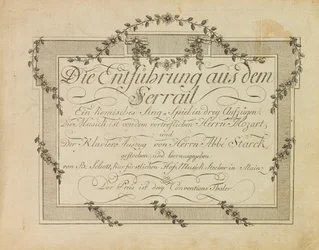 Die Entführung aus dem
Serrail
Ein Komisches Sing-Spiel in drey Aufzügen
Die Musick ist von dem vortreflichen Herrn Mozart,
und
Der Klavier Auszug von Herrn Abbé Starck
gestochen und herausgegeben
von B. Schott, churfürstlichen Hof-Musick Stecher in Mainz
Der Preis ist drey Conventions Thaler